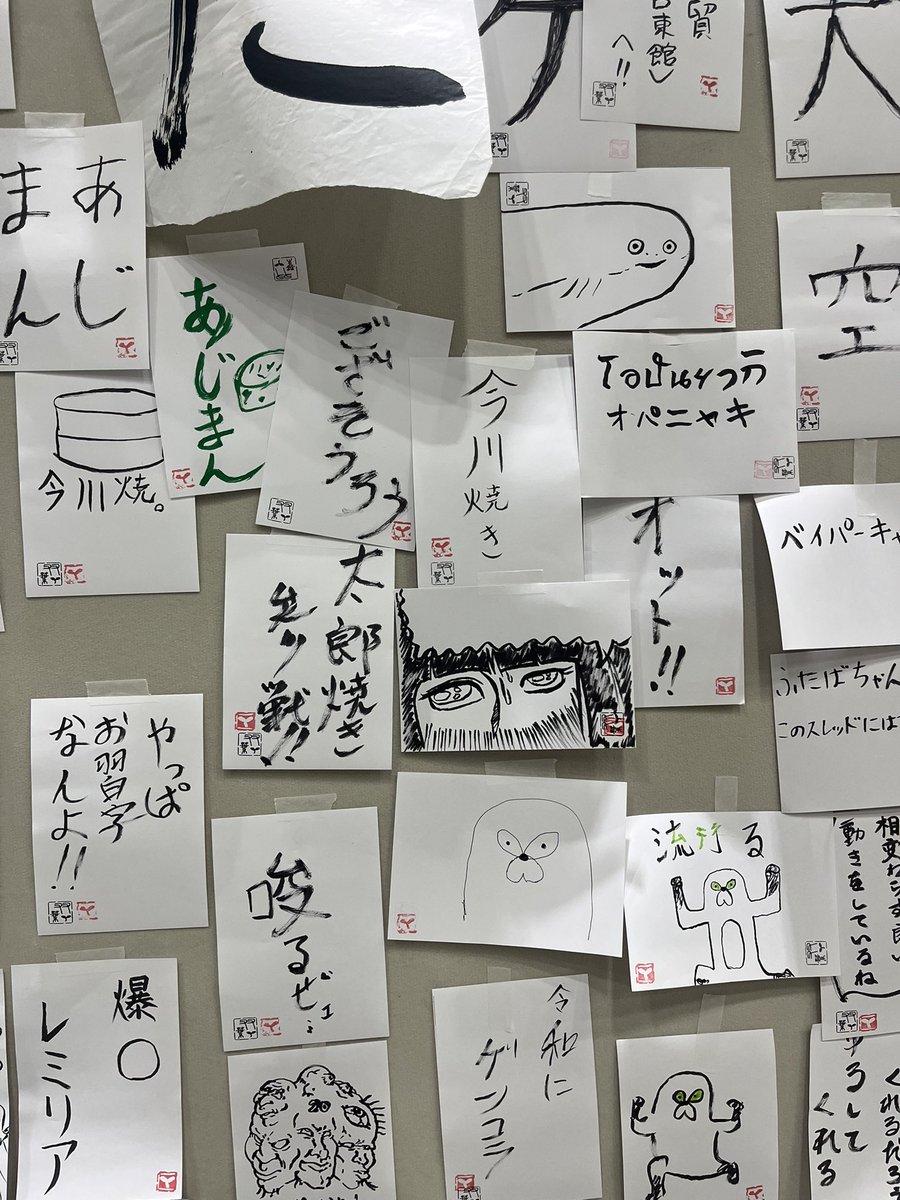 た
ケ
貿
台東館)
へ!!
大
あじ
まん
空
あじまん
ござそうろう
今川焼き
オパニャキ
今川焼。
オット!!
ベイパーキャ
太郎焼き
参戦!!
ふたばちゃん
このスレッドには
やっぱ
お習字
なんよ!!
唆るぜェ…
流行る
相変わらず良い
動きをしているね
爆〇
レミリア
令和に
ゲンコラ
くれるだろう
ゆるして
くれる